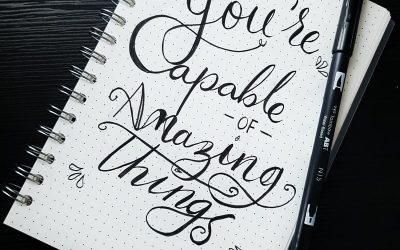 You're
Capable
- OF -
Amazing
Things
ABT
N15